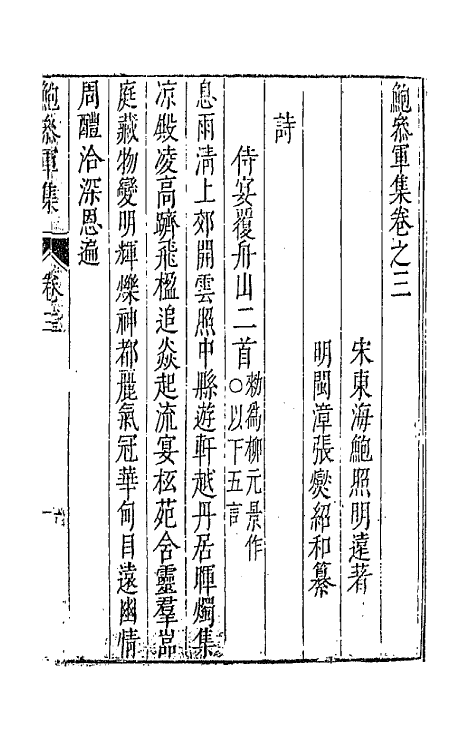 鮑參軍集卷之三
宋東海鮑照明遠著
明閩漳張燮紹和纂
詩
侍宴覆舟山二首○以下五言 勑爲柳元景作
息雨清上郊開雲照中縣遊軒越丹居暉燭集
凉殿凌高躋飛楹追焱起流宴松苑含靈羣嵓
庭藏物變明輝爍神都麗氣冠華甸目遠幽情
周醴洽深恩遍
鮑參軍集 卷三 一